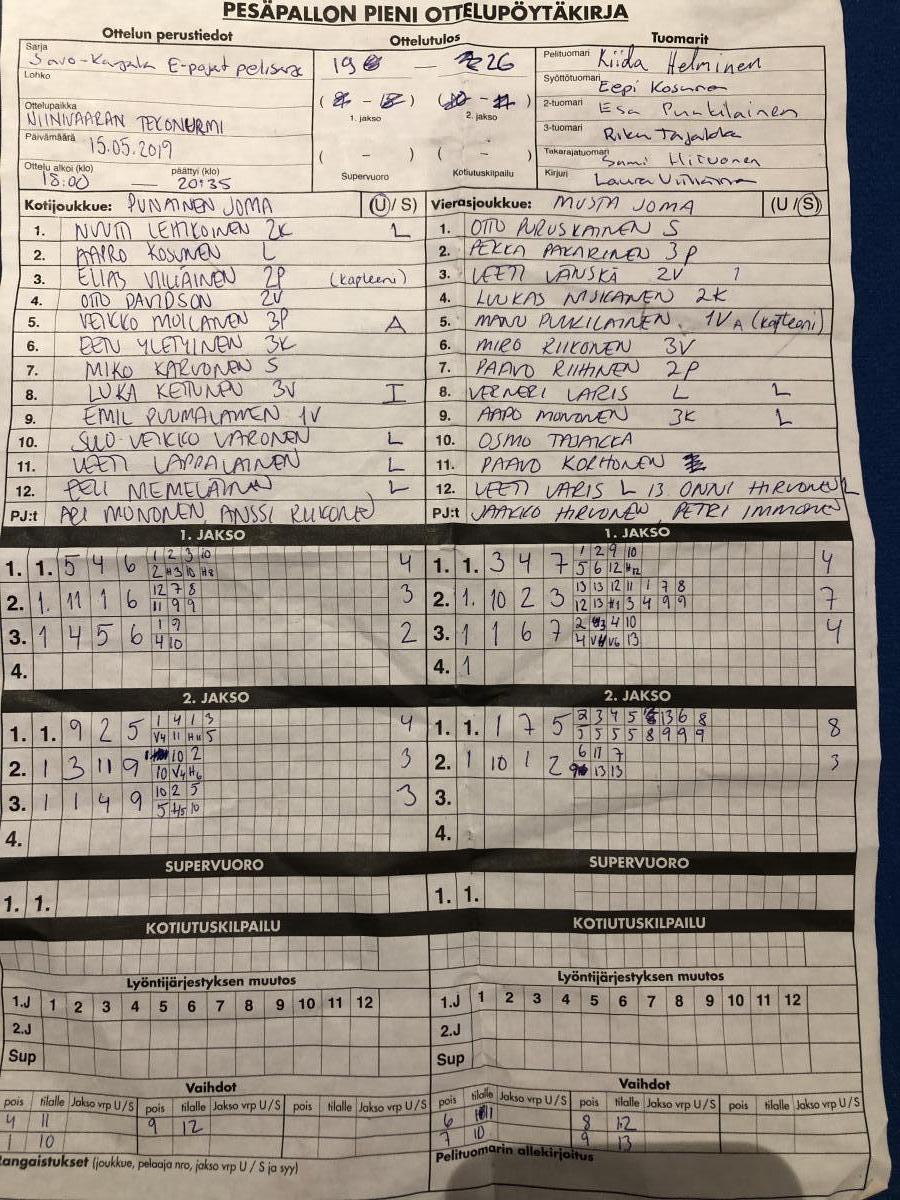 PESÄPALLON PIENI OTTELUPÖYTÄKIRJA
Ottelun perustiedot
Ottelutulos
Tuomarit
Sarja
Savo-Karjala E-pojat
Lohko
Ottelupaikka
NIINIVAARAN TEKONURMI
Päivämäärä
15.05.2019
Ottelu alkoi (klo) päättyi (klo)
18:00 — 20:35
19 — 26
1. jakso 2. jakso
( - ) ( - )
Supervuoro Kotiutuskilpailu
Pelituomari Kiida Helminen
Syöttötuomari Eepi Kosunen
2-tuomari Esa Puukilainen
3-tuomari Riku Tajakka
Takarajatuomari Sami Hirvonen
Kirjuri Laura
Kotijoukkue: PUNAINEN JOMA (U / S)
1. NUUTI LEHIKOINEN 2K L
2. AAPRO KOSUNEN L
3. ELIAS 2P (kapteeni)
4. OTTO DAVIDSON 2V
5. VEIKKO MOILANEN 3P A
6. EEN YLETYINEN 3K
7. MIKO KARVONEN S
8. LUKA KETTUNEN 3V I
9. EMIL PUUMALAINEN 1V
10. SULO-VEIKKO VARONEN L
11. VEETI LAPPALAINEN L
12. EELI L
PJ:t ARI MONONEN, ANSSI RIIKONEN
Vierasjoukkue: MUSTA JOMA (U / S)
1. OTTO PURUSKAINEN S
2. PEKKA PAKARINEN 3P
3. VEETI VÄNSKÄ 2V 1
4. LUUKAS NISKANEN 2K
5. MANU PUUKILAINEN 1V A (kapteeni)
6. MIRO RIIKONEN 3V
7. PAAVO RIIHINEN 2P
8. VERNERI LARIS L L
9. AAPO MONONEN 3K L
10. OSMO TAJAKKA
11. PAAVO KORHONEN
12. VEETI VARIS L 13. ONNI HIRVONEN L
PJ:t JAAKKO HIRVONEN, PETRI IMMONEN
1. JAKSO
1. 1. 5 4 6 1 2 3 10 4
2 H3 10 H8
2. 1. 11 1 6 12 7 8 3
11 9 9
3. 1 4 5 6 1 9 2
4 10
4.
1. JAKSO
1. 1. 3 4 7 1 2 9 10 4
5 6 12 H12
2. 1. 10 2 3 13 13 12 11 1 7 8 7
12 13 H1 3 4 9 9
3. 1 1 6 7 2 4 10 4
4 V6 13
4. 1
2. JAKSO
1. 1. 9 2 5 1 4 1 3 4
V4 11 H11 5
2. 1 3 11 9 10 2 3
10 V4 H6
3. 1 1 4 9 10 2 5 3
5 H5 10
4.
2. JAKSO
1. 1. 1 7 5 2 3 4 5 13 6 8 8
5 5 5 5 8 9 9 9
2. 1 10 1 2 6 11 7 3
13 13
3.
4.
SUPERVUORO
1. 1.
SUPERVUORO
1. 1.
KOTIUTUSKILPAILU
KOTIUTUSKILPAILU
Lyöntijärjestyksen muutos
1.J 1 2 3 4 5 6 7 8 9 10 11 12
2.J
Sup
Lyöntijärjestyksen muutos
1.J 1 2 3 4 5 6 7 8 9 10 11 12
2.J
Sup
Vaihdot
pois tilalle Jakso vrp U / S pois tilalle Jakso vrp U / S pois tilalle Jakso vrp U / S
4 11 9 12
1 10
Vaihdot
pois tilalle Jakso vrp U / S pois tilalle Jakso vrp U / S pois tilalle Jakso vrp U / S
6 11 8 12
7 10 9 13
angaistukset (joukkue, pelaaja nro, jakso vrp U / S ja syy)
Pelituomarin allekirjoitus